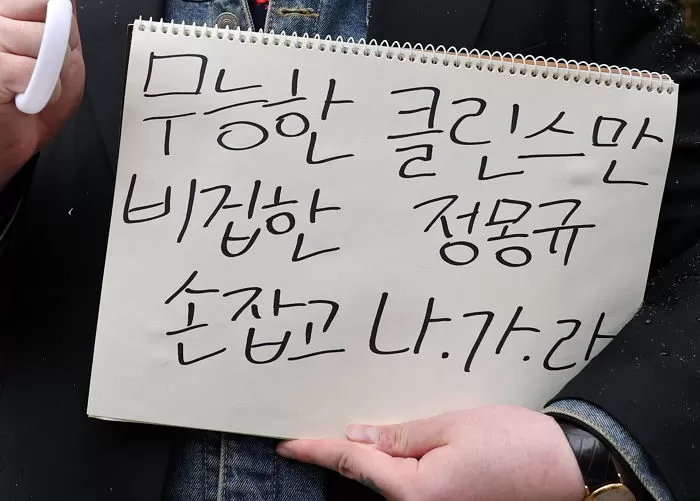 무능한 클린스만
비겁한 정몽규
손잡고 나.가.라